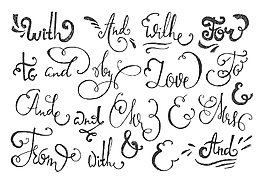 With And With For
to and by Love To
And and Or & & Mrs
From with & & And